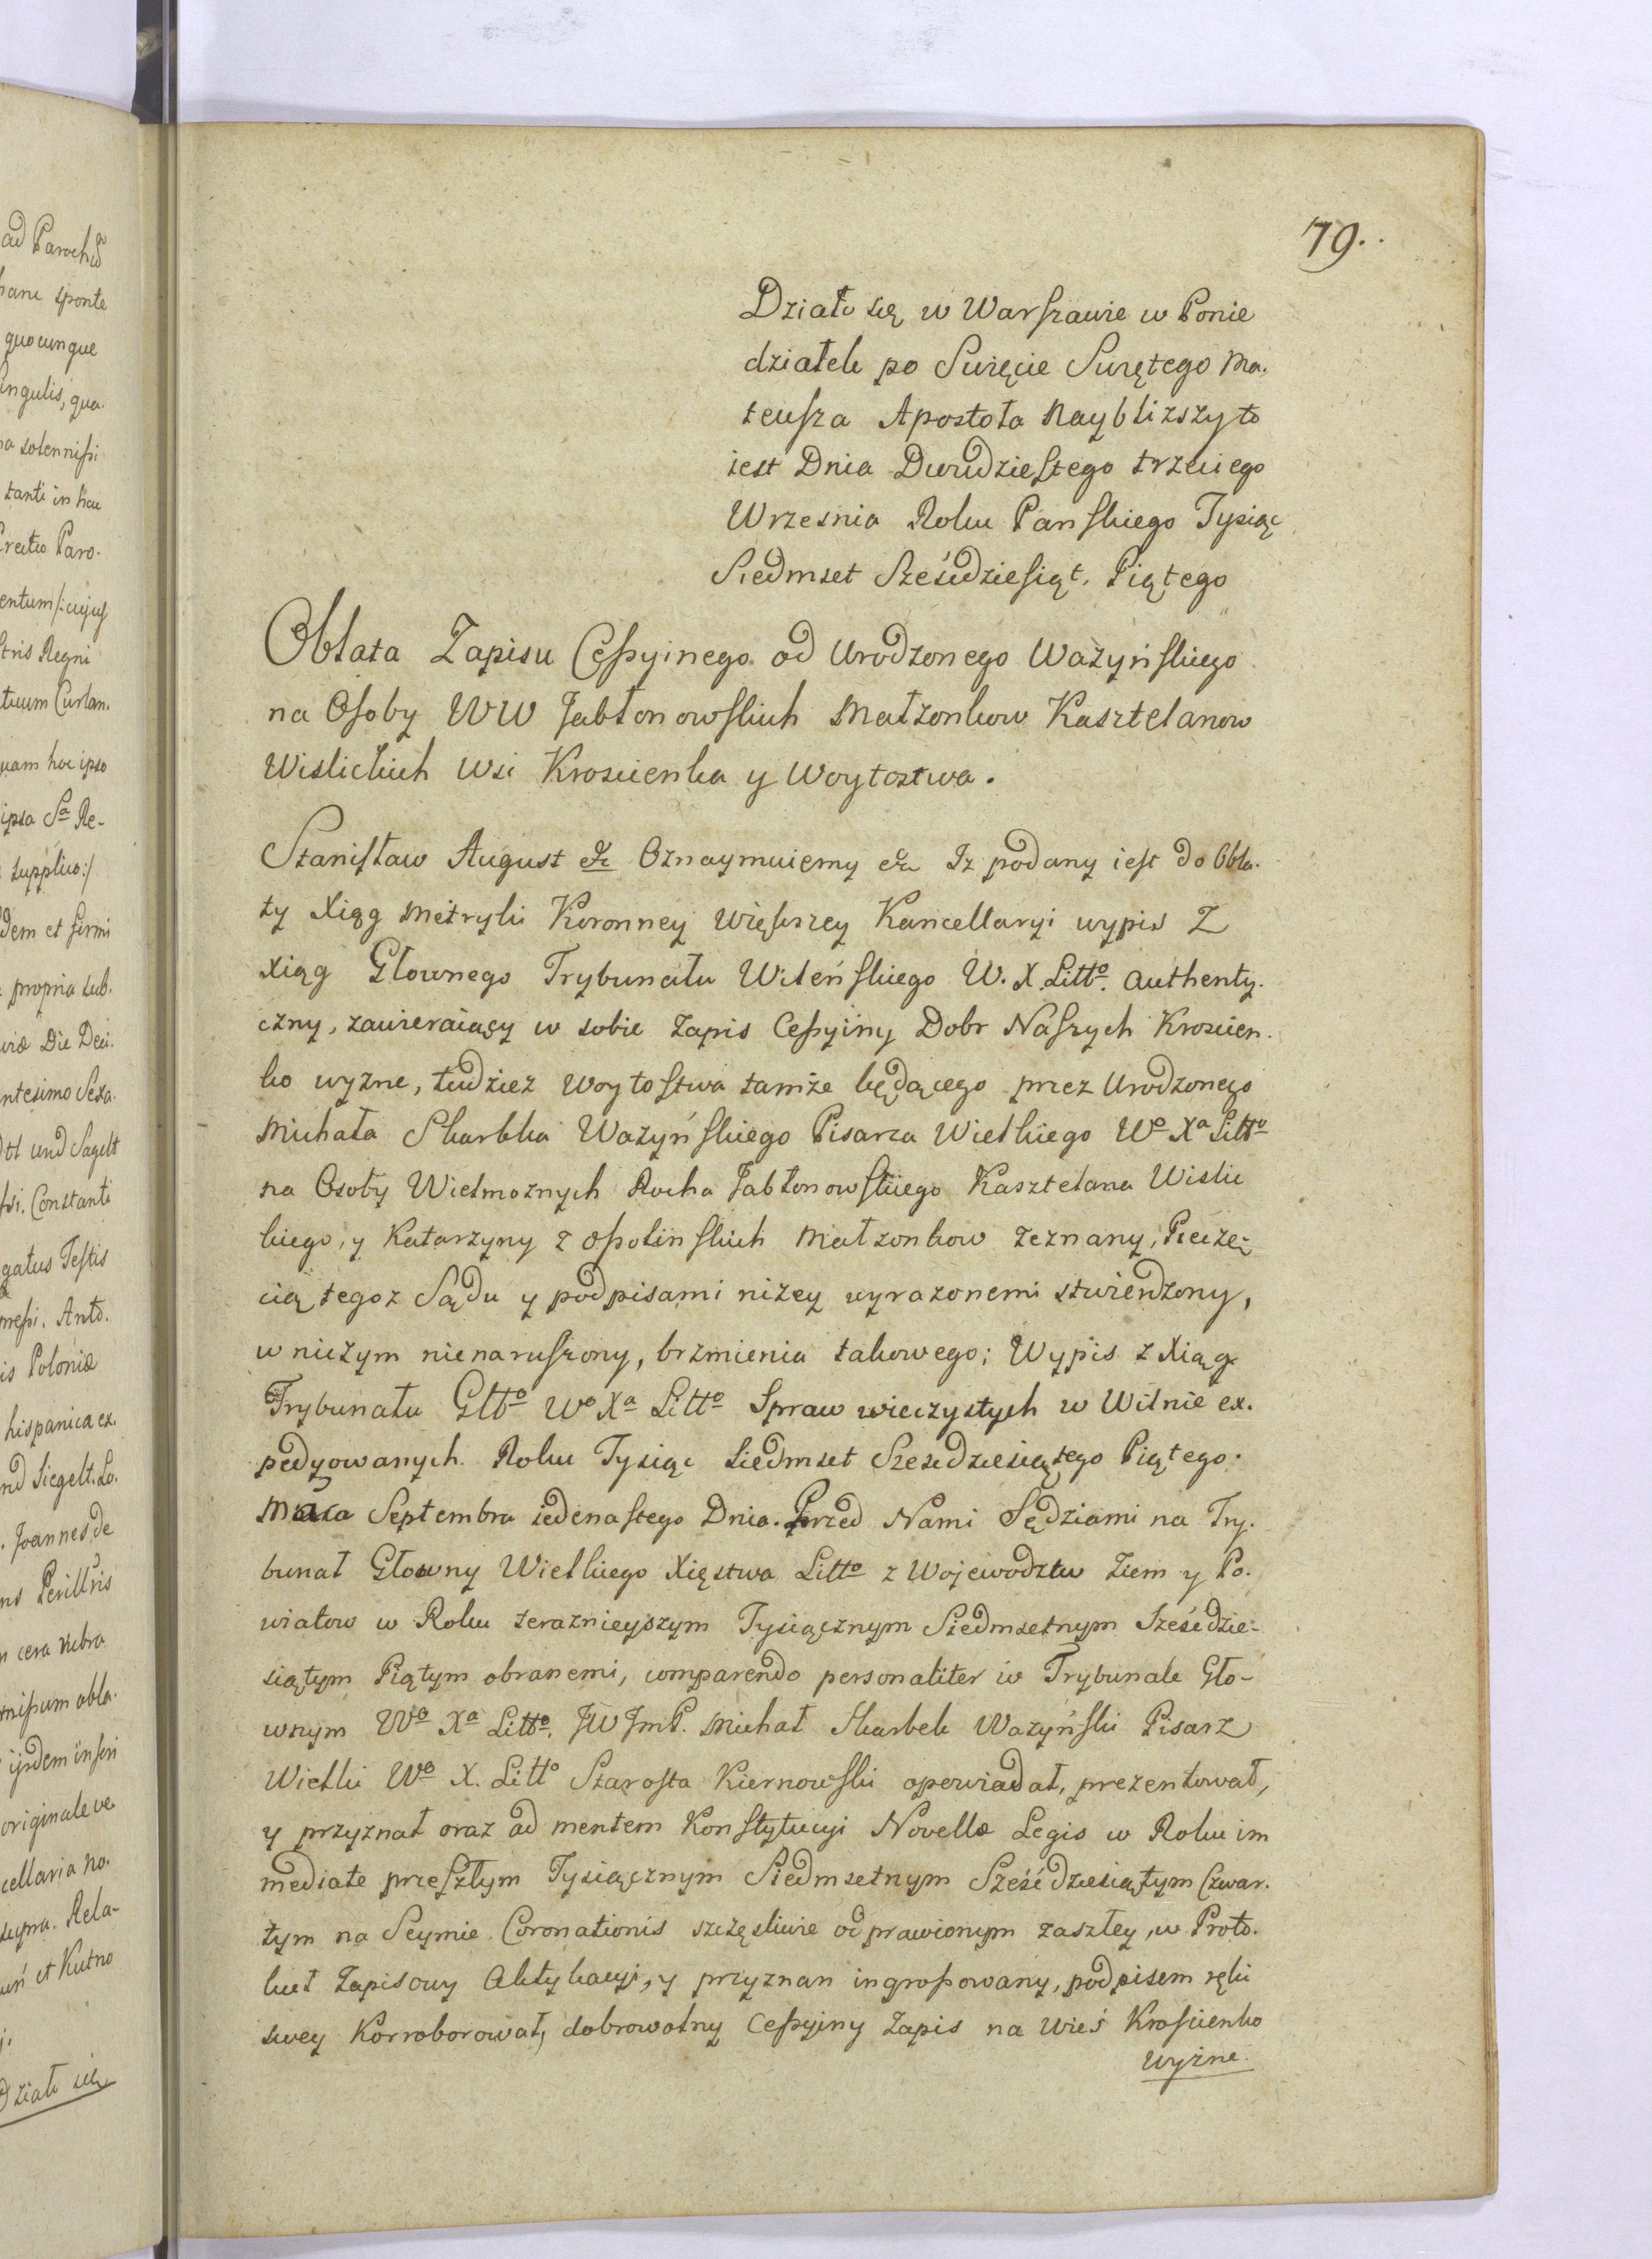 ad Paroch
hanc sponte
quocunque
singulis, qua-
na solennissi
tanti in hac
Paro-
entum/: cujus
Regni
Curlan.
quam hoc ipso
ipsa Sa Re-
supplico:/
dem et firmi
propria sub.
Die Deci.
ntesimo Sexa.
und Sagelt
Constanti
gatus Testis
Anto.
is Poloniæ
hispanica ex.
nd Siegelt. Lo.
Joannes de
Perillris
cera rubra
obla-
ijsdem inseri
originale ve
cellaria no.
supra. Rela-
et Kutno
Działo się
79.
Działo się w Warszawie w Ponie
działek po Swięcie Swiętego Ma.
teusza Apostoła Naybliższy to
iest Dnia Dwudziestego trzeciego
Wrzesnia Roku Panskiego Tysiąc
Siedmset Sześćdziesiąt. Piątego
Oblata Zapisu Cessyinego od Urodzonego Ważyńskiego
na Osoby WW Jabłonowskich Małzonkow Kasztelanow
Wislickich Wsi Kroscienka y Woytostwa.
Stanisław August &c Oznaymuiemy &c Iz podany iest do Obla-
ty Xiąg Metryki Koronney Większey Kancellaryi wypis Z
Xiąg Głownego Trybunału Wileńskiego W. X. Litto. Authenty-
czny, zawieraiący w sobie Zapis Cessyiny Dobr Naszych Kroscien-
ko wyzne, tudziez Woytostwa tamże będącego przez Urodzonego
Michała Skarbka Ważyńskiego Pisarza Wielkiego Wo Xa Litto
na Osoby Wielmoznych Rocha Jabłonowskiego Kasztelana Wislic
kiego, y Katarzyny z Opolinskich Małzonkow Zeznany, Pieczę-
cią tegoz Sądu y podpisami niżey wyrazonemi stwierdzony,
w niczym nienaruszony, brzmienia takowego; Wypis z Xiąg
Trybunału Głłgo Wo Xa Litto Spraw wieczystych w Wilnie ex-
pedyowanych. Roku Tysiąc Siedmset Szescdziesiątego Piątego.
Mca Septembra iedenastego Dnia. Przed Nami Sędziami na Try-
bunał Głowny Wielkiego Xięstwa Litto z Wojewodztw Ziem y Po-
wiatow w Roku teraznieyszym Tysiącznym Siedmsetnym Sześćdzie-
siątym Piątym obranemi, comparendo personaliter w Trybunale Gło-
wnym Wo Xa Litto. JW JmP. Michał Skarbek Ważyński Pisarz
Wielki Wo X. Litto Starosta Kiernowski opowiadał, prezentował,
y przyznał oraz ad mentem Konstytucyi Novellæ Legis w Roku im
mediate przeszłym Tysiącznym Siedmsetnym Sześćdziesiątym Czwar-
tym na Seymie Coronationis szczęsliwie odprawionym zaszłey, w Proto-
kuł Zapisowy Aktykacyi, y przyznan ingrossowany, podpisem ręki
swey Korroborował, dobrowolny Cessyiny Zapis na Wieś Kroscienko
wyżne.